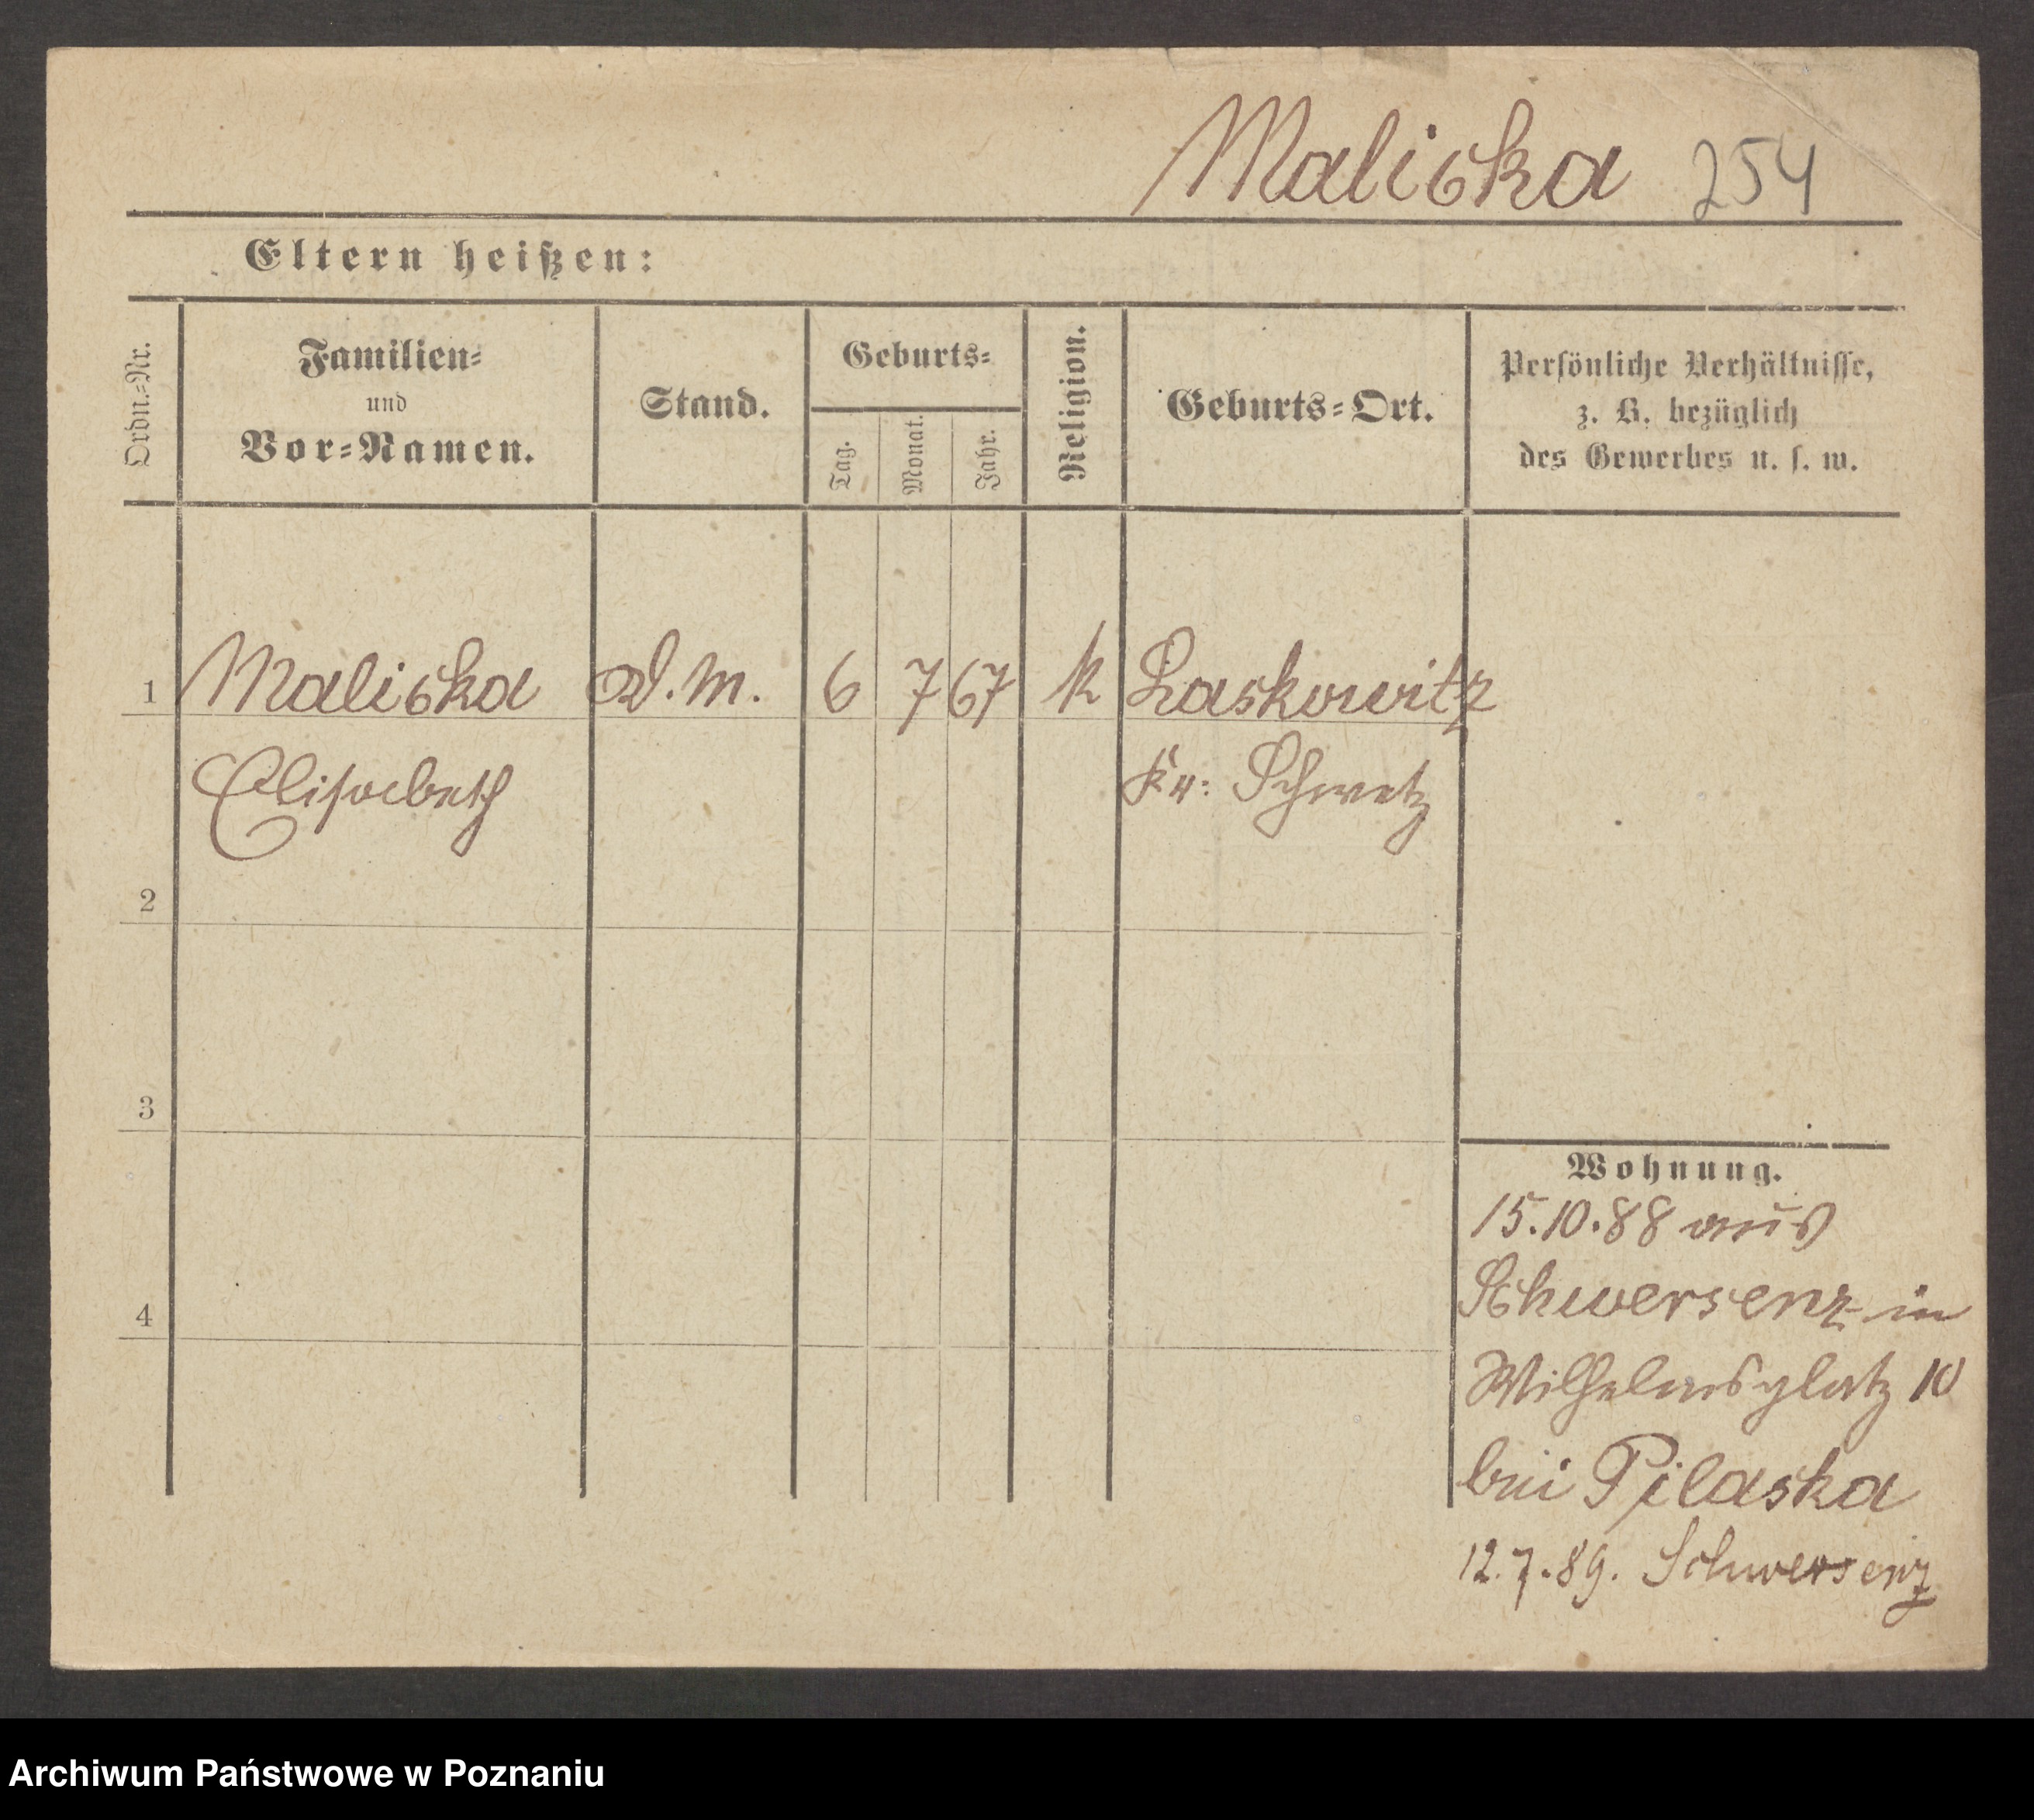 Malicka 254
Eltern heißen:
Ordn.=Nr.
Familien=
und
Vor=Namen.
Stand.
Geburts=
Tag.
Monat.
Jahr.
Religion.
Geburts=Ort.
Persönliche Verhältnisse,
z. B. bezüglich
des Gewerbes u. s. w.
1 Malicka D.M. 6 7 67 K Laskowitz
Elisabeth Kr: Schwetz
2
3
4
Wohnung.
15.10.88 aus
Schwersenz in
Wilhelmsplatz 10
bei Pilaska
12.7.89. Schwersenz
Archiwum Państwowe w Poznaniu